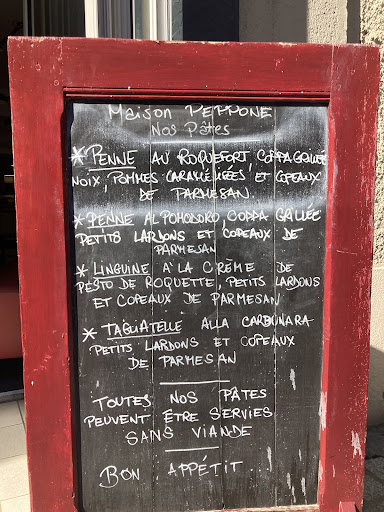 Maison PEPPONE
Nos Pâtes
* PENNE AU ROQUEFORT, COPPA GRILLÉE
NOIX, POMMES CARAMÉLISÉES, ET COPEAUX
DE PARMESAN.
* PENNE AL POMODORO, COPPA GRILLÉE
PETITS LARDONS ET COPEAUX DE
PARMESAN
* LINGUINE À LA CRÈME DE
PESTO DE ROQUETTE, PETITS LARDONS
ET COPEAUX DE PARMESAN
* TAGLIATELLE ALLA CARBONARA
PETITS LARDONS ET COPEAUX
DE PARMESAN
TOUTES NOS PÂTES
PEUVENT ÊTRE SERVIES
SANS VIANDE
BON APPÉTIT